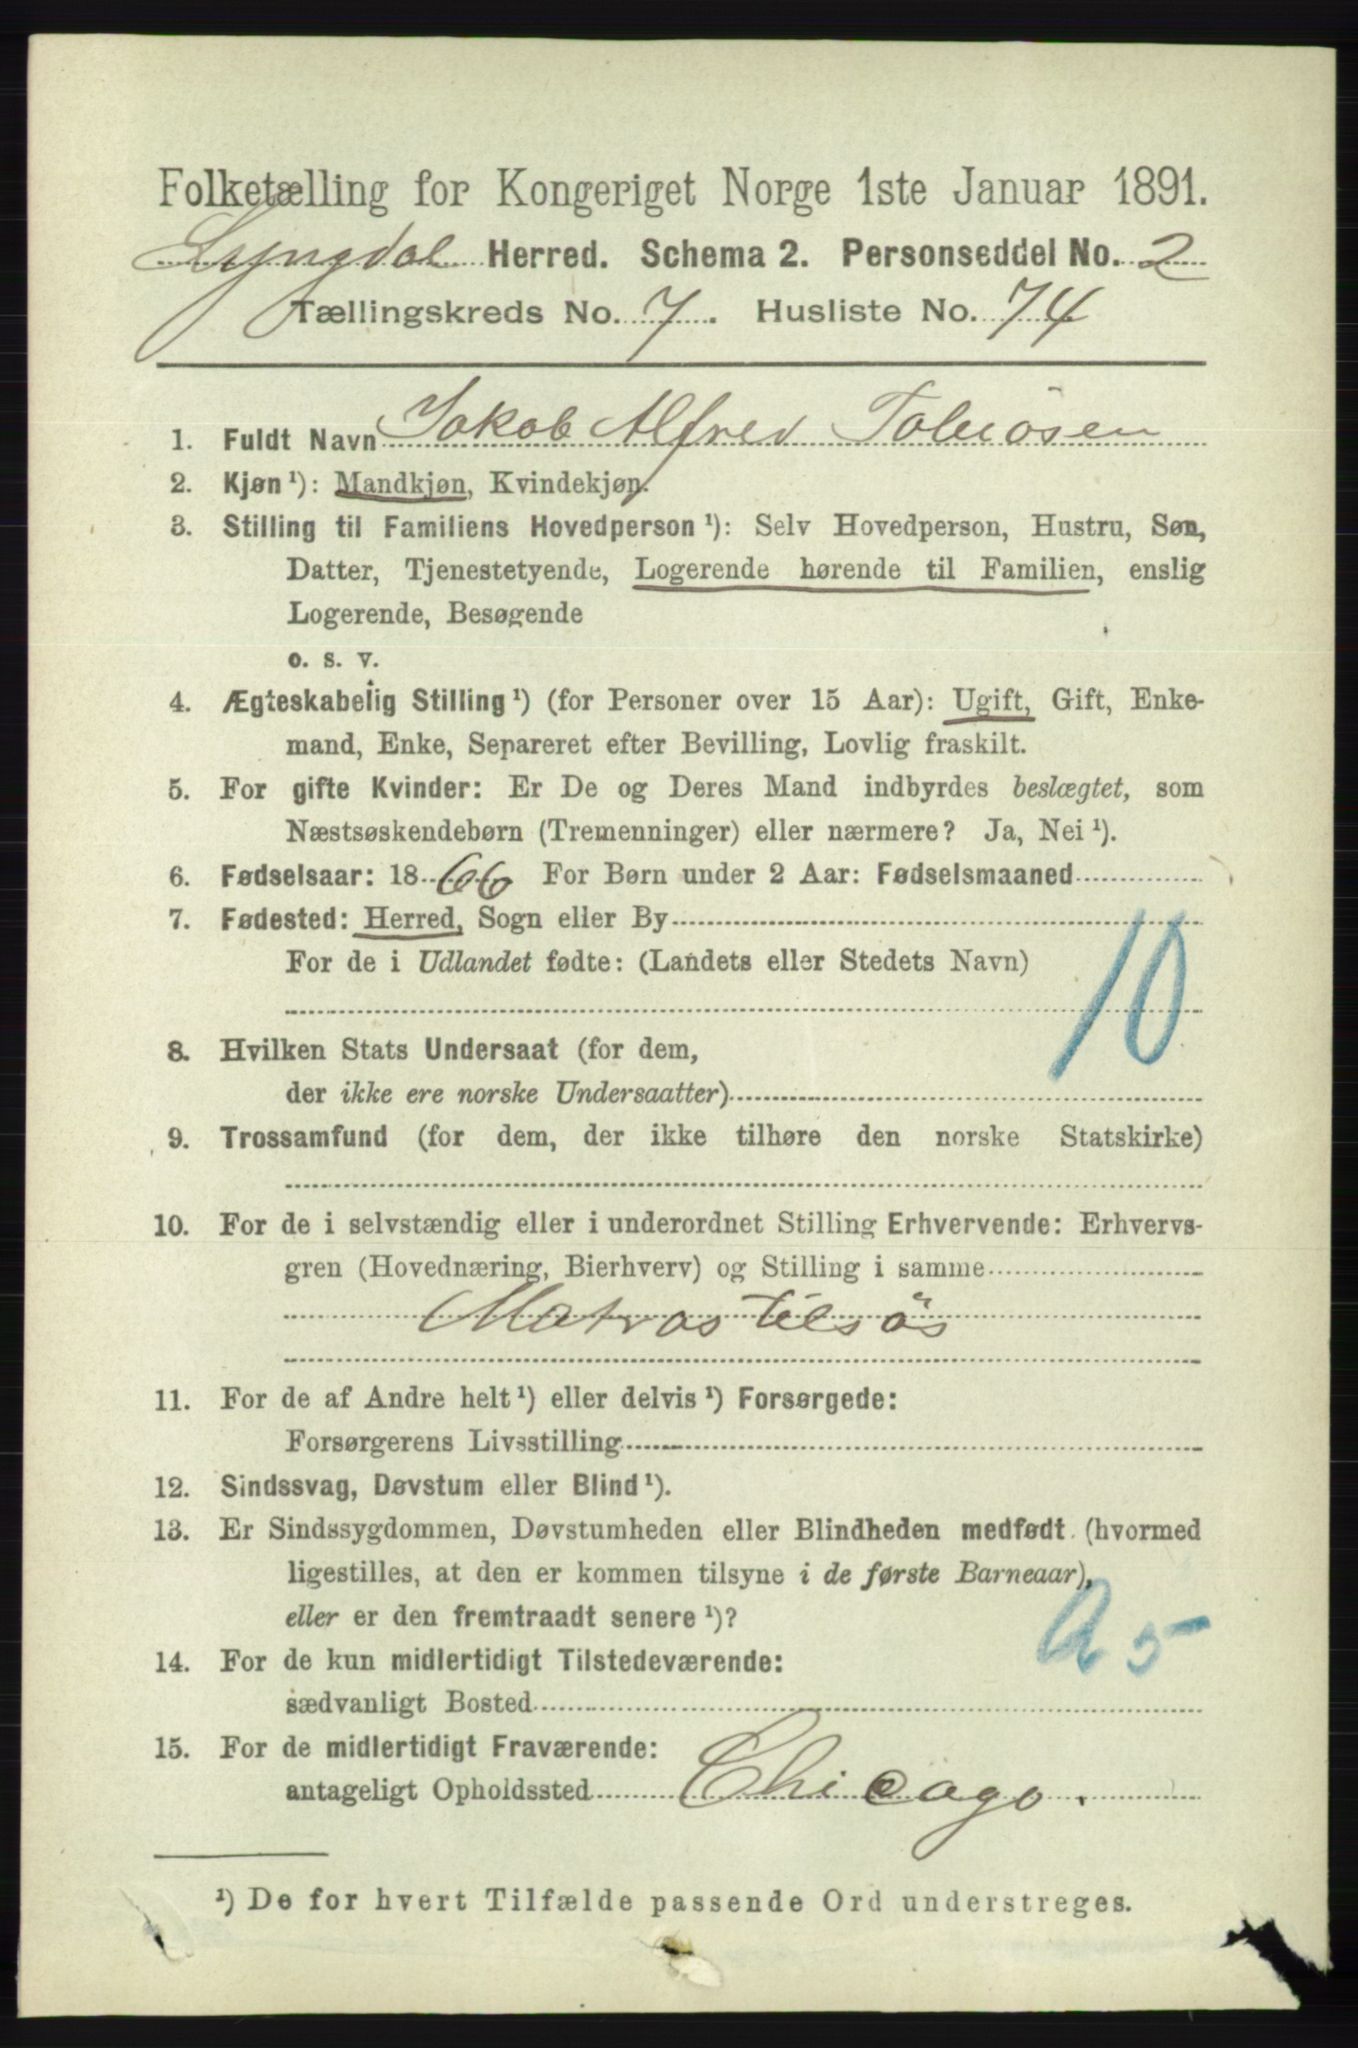 Folketælling for Kongeriget Norge 1ste Januar 1891.
Lyngdal Herred. Schema 2. Personseddel No. 2
Tællingskreds No. 7. Husliste No. 74
1. Fuldt Navn Jakob Alfred Tobiösen
2. Kjøn ¹): Mandkjøn, Kvindekjøn.
3. Stilling til Familiens Hovedperson ¹): Selv Hovedperson, Hustru, Søn,
Datter, Tjenestetyende, Logerende hørende til Familien, enslig
Logerende, Besøgende
o. s. v.
4. Ægteskabelig Stilling ¹) (for Personer over 15 Aar): Ugift, Gift, Enke-
mand, Enke, Separeret efter Bevilling, Lovlig fraskilt.
5. For gifte Kvinder: Er De og Deres Mand indbyrdes beslægtet, som
Næstsøskendebørn (Tremenninger) eller nærmere? Ja, Nei ¹).
6. Fødselsaar: 1866 For Børn under 2 Aar: Fødselsmaaned
7. Fødested: Herred, Sogn eller By
For de i Udlandet fødte: (Landets eller Stedets Navn)
10
8. Hvilken Stats Undersaat (for dem,
der ikke ere norske Undersaatter)
9. Trossamfund (for dem, der ikke tilhøre den norske Statskirke)
10. For de i selvstændig eller i underordnet Stilling Erhvervende: Erhvervs-
gren (Hovednæring, Bierhverv) og Stilling i samme
Matros tilsös
11. For de af Andre helt ¹) eller delvis ¹) Forsørgede:
Forsørgerens Livsstilling
12. Sindssvag, Døvstum eller Blind ¹).
13. Er Sindssygdommen, Døvstumheden eller Blindheden medfødt (hvormed
ligestilles, at den er kommen tilsyne i de første Barneaar),
eller er den fremtraadt senere ¹)?
a 5
14. For de kun midlertidigt Tilstedeværende:
sædvanligt Bosted
15. For de midlertidigt Fraværende:
antageligt Opholdssted Chicago.
¹) De for hvert Tilfælde passende Ord understreges.